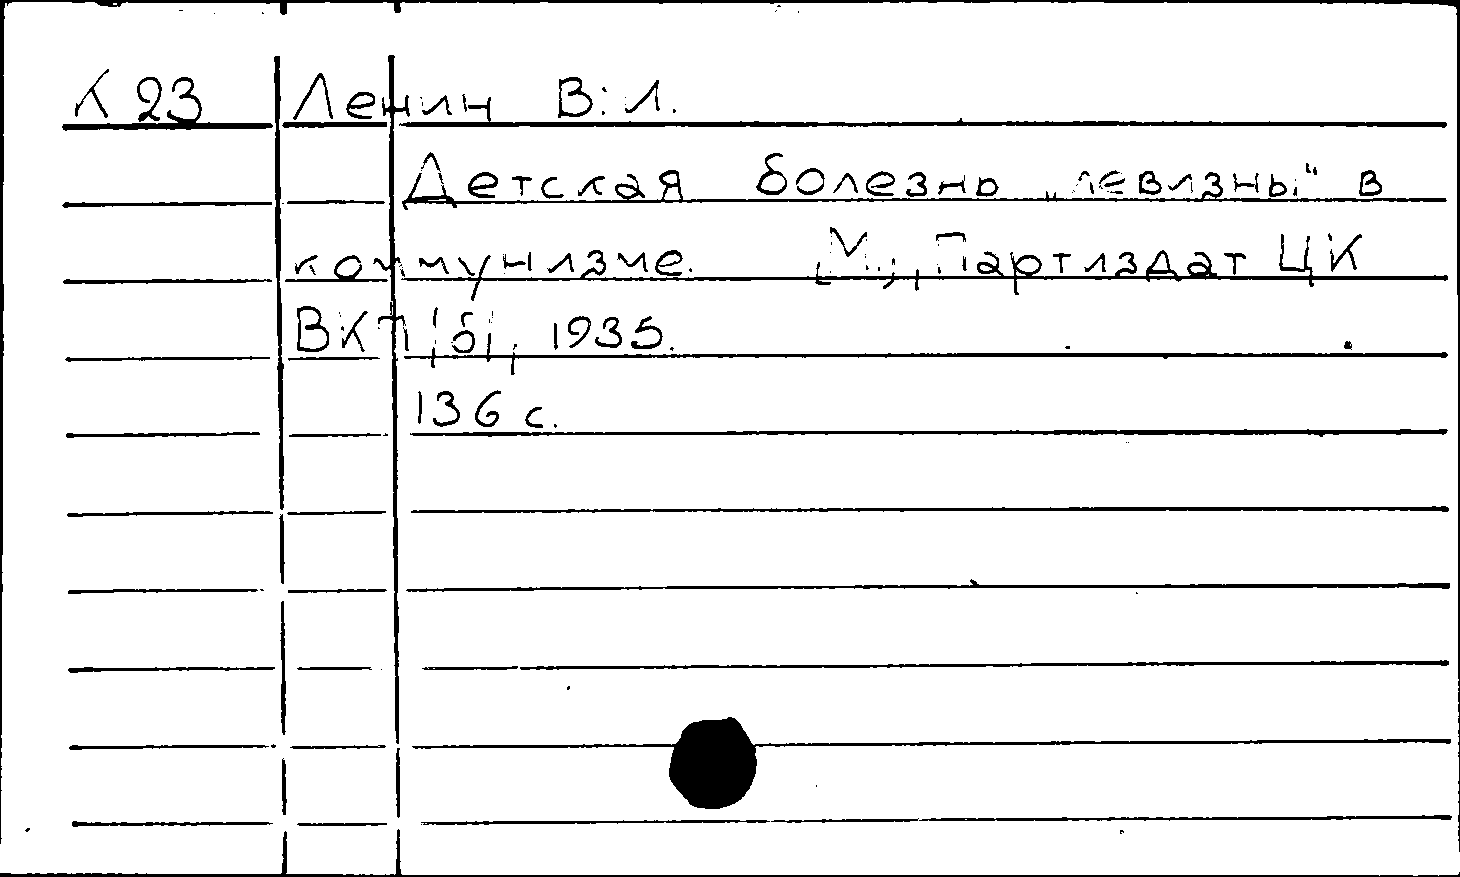 К 23 Ленин В. И.
Детская болезнь „левизны" в
коммунизме. [М.], Партиздат ЦК
ВКП/б/, 1935.
136 с.